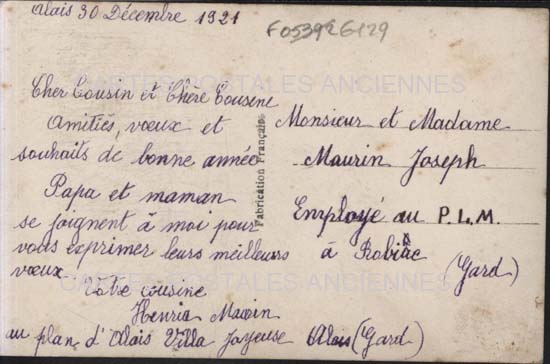 Alais 30 Décembre 1921
F053926129
Cher Cousin et Chère Cousine
Amitiés, vœux et
souhaits de bonne année
Papa et maman
se joignent à moi pour
vous exprimer leurs meilleurs
vœux.
Votre cousine
Henria
au plan d'Alais Villa Joyeuse Alais (Gard)
Fabrication Française
Monsieur et Madame
Maurin Joseph
Employé au P.L.M.
à Robiac
(Gard)
CARTES POSTALES ANCIENNES
CARTES POSTALES ANCIENNES